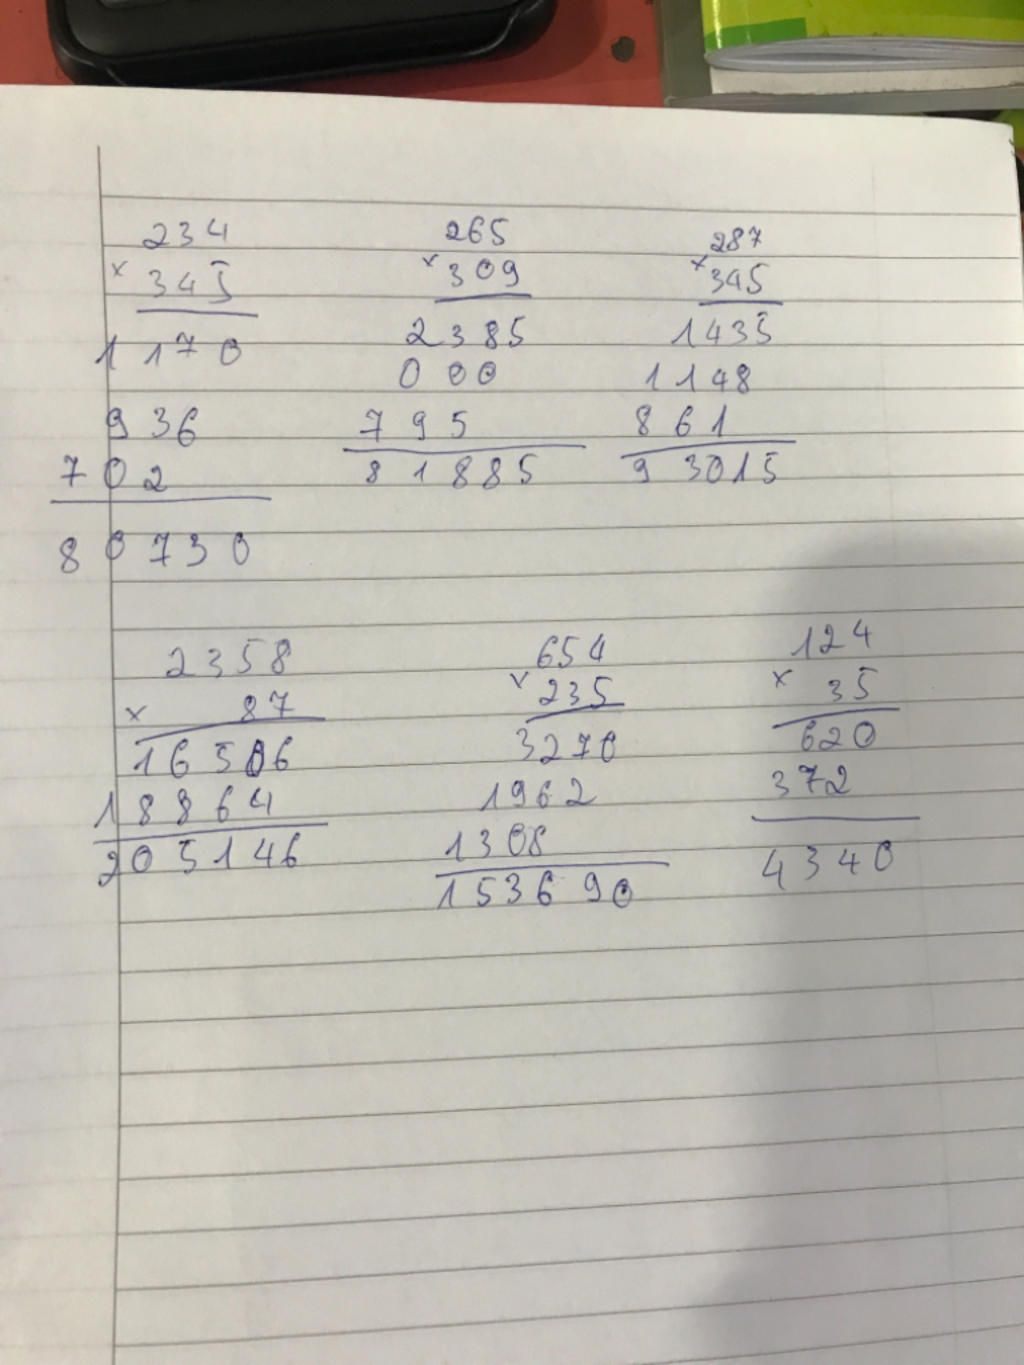 234
× 345
1170
936
702
80730
265
× 309
2385
000
795
81885
287
× 345
1435
1148
861
93015
2358
× 87
16506
18864
205146
654
× 235
3270
1962
1308
153690
124
× 35
620
372
4340